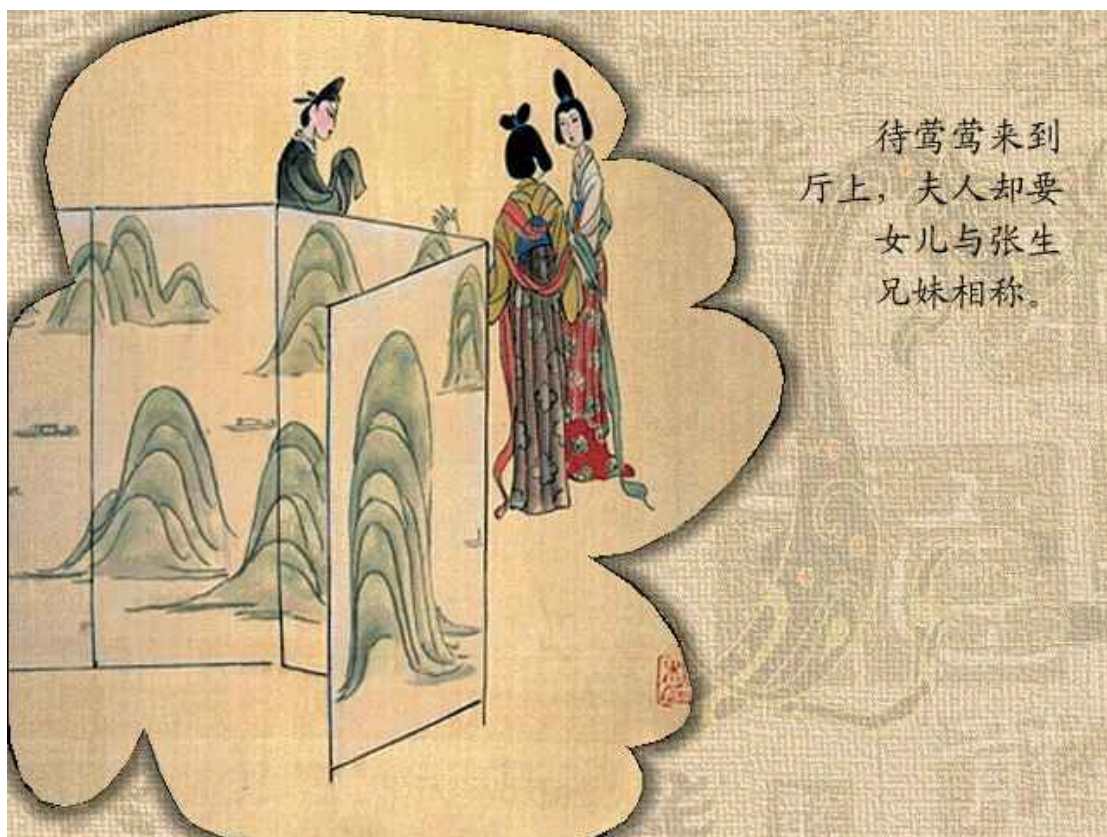 待莺莺来到
厅上，夫人却要
女儿与张生
兄妹相称。